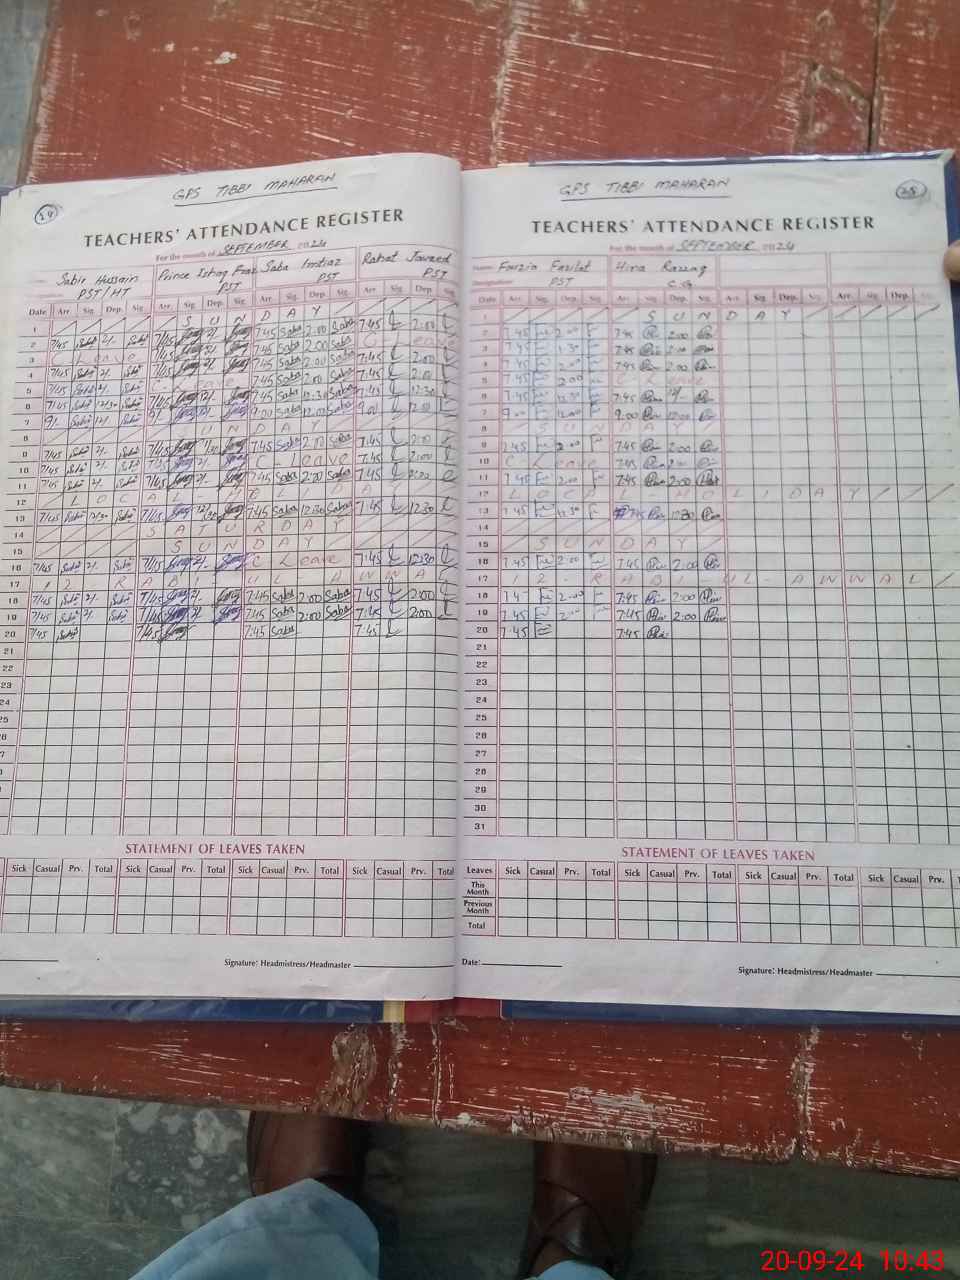 24
GPS TIBBI MAHARAN
TEACHERS' ATTENDANCE REGISTER
For the month of SEPTEMBER 2024
Sabir Hussain Prince Ishaq Saba Imtiaz Rahat Jaweed
PST/HT PST PST PST
Date Arr. Sig. Dep. Sig. Arr. Sig. Dep. Sig. Arr. Sig. Dep. Sig. Arr. Sig. Dep. Sig.
1 S U N D A Y
2 7/45 2/. 7/45 2/. 7:45 Saba 2:00 Saba 7:45 2:00
3 C Leave 7/45 7:45 Saba 2:00 Saba C Leave
4 7/45 2/. 7/45 2/. 7:45 Saba 2:00 Saba 7:45 2:00
5 7/45 2/. C Leave 7:45 Saba 2:00 Saba 7:45 2:00
6 7/45 12/30 7/45 7:45 Saba 12:30 Saba 7:45 12:30
7 9/. 12/. 9/. 12/. 9:00 Saba 12:00 Saba 9:00 12:00
8 S U N D A Y
9 7/45 2/. 7/45 7:45 Saba 2:00 Saba 7:45 2:00
10 7/45 2/. 7/45 2/. C Leave 7:45 2:00
11 7/45 2/. 7/45 2/. 7:45 Saba 2:00 Saba 7:45 2:00
12 L O C A L - H O L I D A
13 7/45 12/30 7/45 12/30 7:45 Saba 12:30 Saba 7:45 12:30
14 S A T U R D A Y
15 S U N D A Y
16 7/45 2/. 7/45 2/. C Leave 7:45 12:30
17 12 - R A B I - U L - A W W A L
18 7/45 2/. 7/45 2/. 7:45 Saba 2:00 Saba 7:45 2:00
19 7/45 2/. 7/45 2/. 7:45 Saba 2:00 Saba 7:45 2:00
20 7/45 7/45 7:45 Saba 7:45
21
22
23
24
25
26
27
STATEMENT OF LEAVES TAKEN
Sick Casual Prv. Total Sick Casual Prv. Total Sick Casual Prv. Total Sick Casual Prv. Total
Signature: Headmistress/Headmaster
25
GPS TIBBI MAHARAN
TEACHERS' ATTENDANCE REGISTER
For the month of SEPTEMBER 2024
Name: Fouzia Fazilat Hina Razzaq
Designation: PST C.G
Date Arr. Sig. Dep. Sig. Arr. Sig. Dep. Sig. Arr. Sig. Dep. Sig. Arr. Sig. Dep. Sig.
1 S U N D A Y
2 7:45 2:00 7:45 2:00
3 7:45 1:30 7:45 2:00
4 7:45 2:00 7:45 2:00
5 7:45 2:00 C Leave
6 7:45 12:30 7:45
7 9:00 12:00 9:00 12:00
8 S U N D A Y
9 7:45 2:00 7:45 2:00
10 C - Leave 7:45 2:00
11 7:45 2:00 7:45 2:00
12 L O C A L - H O L I D A Y
13 7:45 12:30 7:45 12:30
14
15 S U N D A Y
16 7:45 2:00 7:45 2:00
17 12 - R A B I - U L - A W W A L
18 7:45 2:00 7:45 2:00
19 7:45 2:00 7:45 2:00
20 7:45 7:45
21
22
23
24
25
26
27
28
29
30
31
STATEMENT OF LEAVES TAKEN
Leaves Sick Casual Prv. Total Sick Casual Prv. Total Sick Casual Prv. Total Sick Casual Prv.
This Month
Previous Month
Total
Date:
Signature: Headmistress/Headmaster
20-09-24 10:43